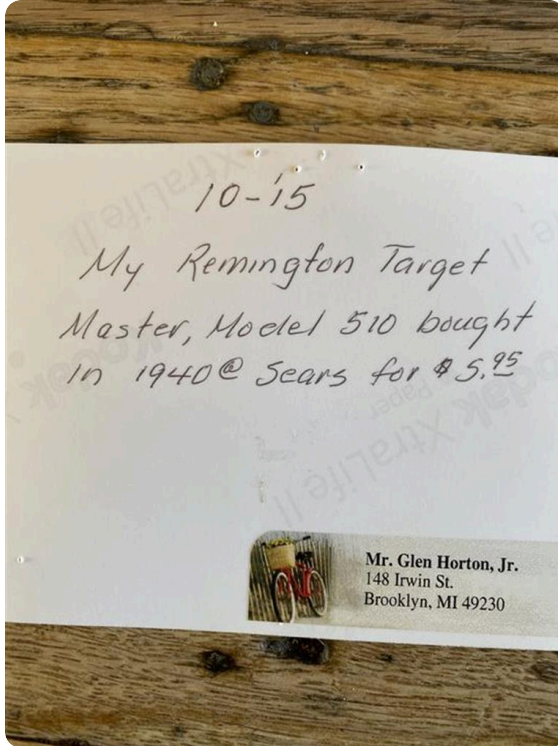 10-15
My Remington Target
Master, Model 510 bought
In 1940 @ Sears for $5.95
Mr. Glen Horton, Jr.
148 Irwin St.
Brooklyn, MI 49230
Kodak XtraLife II
Paper